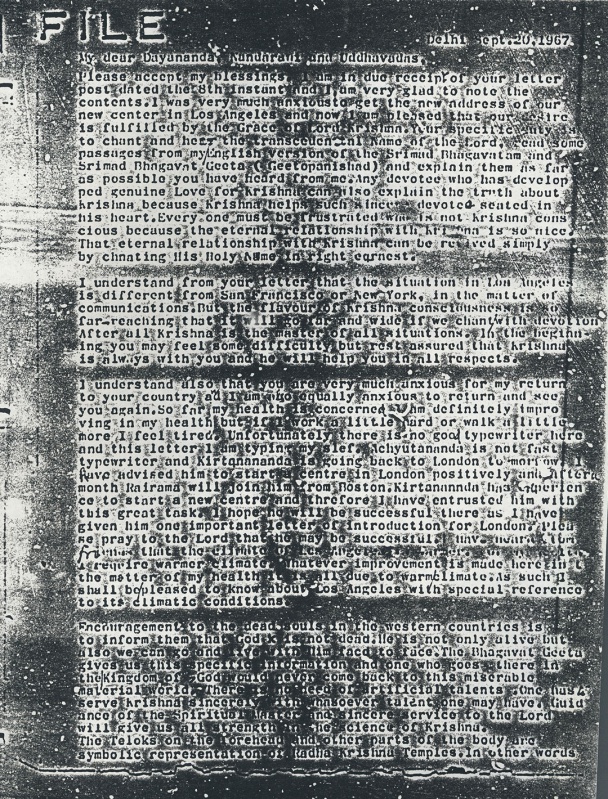 FILE
Delhi Sept.20,1967
My dear Dayananda, Nandarani and Uddhavadas,
Please accept my blessings. I am in due receipt of your letter
post dated the 8th instant and I am very glad to note the
contents.I was very much anxious to get the new address of our
new center in Los Angeles and now I am pleased that our desire
is fulfilled by the Grace of Lord Krishna.Your specific duty is
to chant and hear the transcedental Name of the Lord, read some
passages from my English version of the Srimad Bhagavatam and
Srimad Bhagavat Geeta (Geetopanishad) and explain them as far
as possible you have heard from me.Any devotee who has develop
ped genuine Love for Krishna can also explain the truth about
Krishna because Krishna helps such sincere devotee seated in
his heart.Every one must be frustrated who is not Krishna cons
cious because the eternal relationship with Krishna is so nice
That eternal relationship with Krishna can be revived simply
by chnating His Holy Name in right earnest.
I understand from your letter that the situation in Los Angeles
is different from San Francisco or New York, in the matter of
communications.But the flavour of Krishna consciousness is so
far-reaching that it will go far and wide if we chant with devotion
After all Krishna is the master of all situations. In the beginn-
ing you may feel some difficulty but rest assured that Krishna
is always with you and he will help you in all respects.
I understand also that you are very much anxious for my return
to your country ad I am also equally anxious to return and see
you again.So far my health is concerned I am definitely impro
ving in my health but if I work a little hard or walk a little
more I feel tired. Unfortunately there is no good typewriter here
and this letter I am typing myslef. Achyutananda is not fast
typewriter and Kirtanananda is going back to London to morrow. I
have advised him to start a centre in London positively and
month Rairama will join him from Boston.Kirtanananda has
ce to start a new centre and threfore I have entrusted him with
this great task.I hope he will be successful there as I have
given him one important letter of introduction for London. Plea
se pray to the Lord that he may be successful. I have heard from
friends that the climate of Los Angeles is
I require warmer climate. Whatever improvement is made here in
the matter of my health it is all due to warm climate.As such I
shall be pleased to know about Los Angeles with special reference
to its climatic conditions.
Encouragement to the dead souls in the western countries is
to inform them that God is not dead.He is not only alive but
also we can go and live with Him face to face.The Bhagavat Geeta
gives us this specific information and one who goes there in
the Kingdom of God would never come back to this miserable
material world. There is no need of artificial talents .One has to
serve Krishna sincerely with whasoever talent one may have. Guid
ance of the Spiritual Master and sincere service to the Lord
will give us all strength in the Science of Krishna.
The Teloks on the forehead and other parts of the body are
symbolic representation of Radha Krishna Temples.In other words